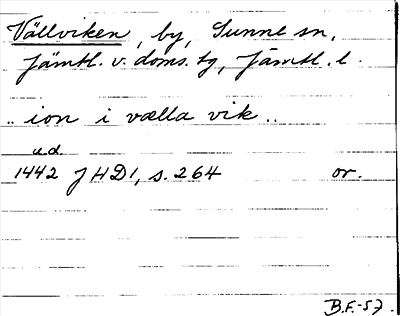 Vällviken, by, Sunne sn,
Jämtl. v. doms. tg, Jämtl. l.
.. ion i vælla vik ..
u.d.
1442 JHD 1, s. 264 or.
B.F.-57.